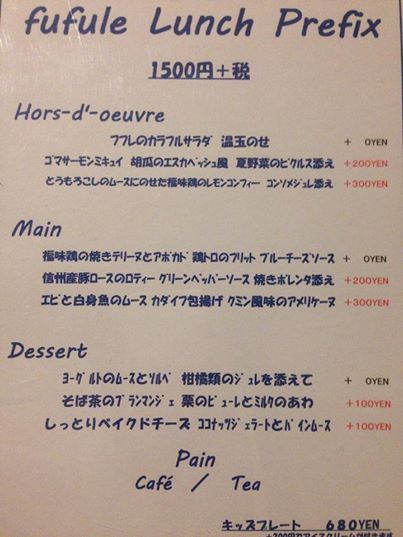 fufule Lunch Prefix
1500円＋税
Hors-d'-oeuvre
フフレのカラフルサラダ 温玉のせ + 0YEN
ゴマサーモンミキュイ 胡瓜のエスカベッシュ風 夏野菜のピクルス添え +200YEN
とうもろこしのムースにのせた福味鶏のレモンコンフィー コンソメジュレ添え +300YEN
Main
福味鶏の焼きテリーヌとアボカド 鶏トロのフリット ブルーチーズソース + 0YEN
信州産豚ロースのロティー グリーンペッパーソース 焼きポレンタ添え +200YEN
エビと白身魚のムース カダイフ包揚げ クミン風味のアメリケーヌ +300YEN
Dessert
ﾖｰｸﾞﾙﾄのムースとソルベ 柑橘類のｼﾞｭﾚを添えて + 0YEN
そば茶のﾌﾞﾗﾝﾏﾝｼﾞｪ 栗のﾋﾟｭｰﾚとﾐﾙｸのあわ +100YEN
しっとりベイクドチーズ ココナッツｼﾞｪﾗｰﾄとﾊﾟｲﾝムース +100YEN
Pain
Café / Tea
キッズプレート 680YEN
+200円でアイスクリームが付きます